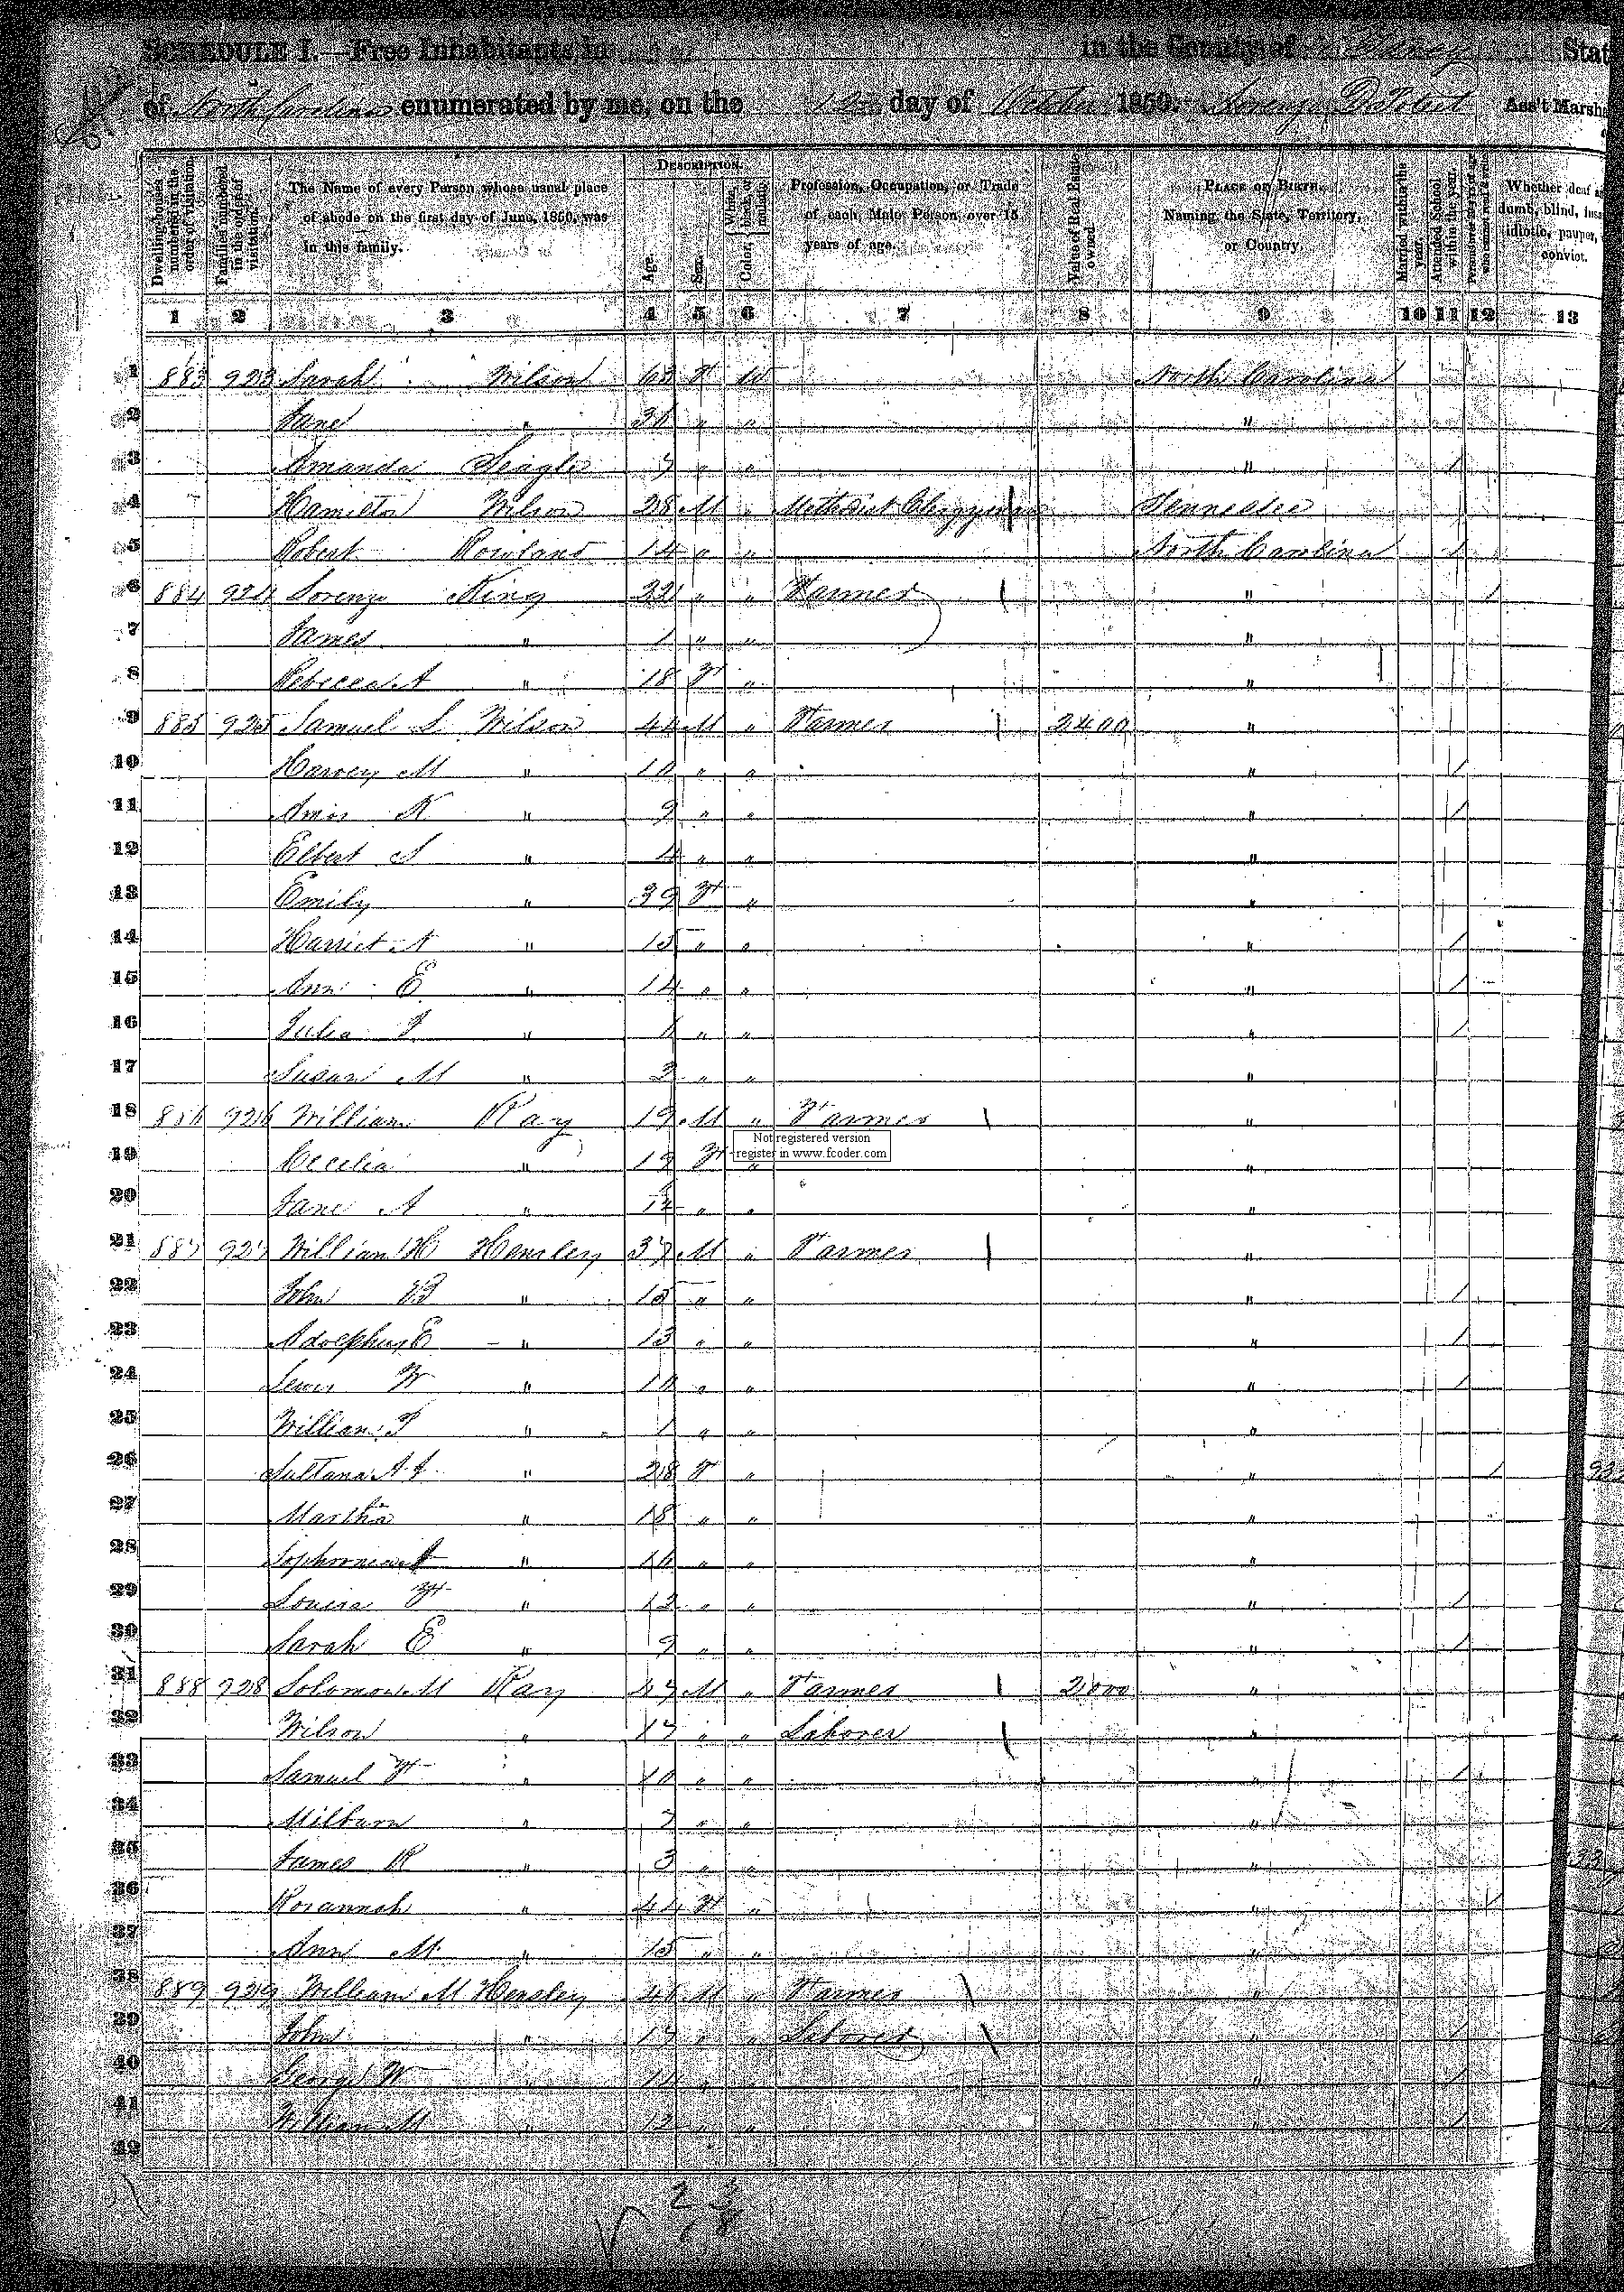 SCHEDULE I.—Free Inhabitants in in the County of Yancy State
of North Carolina enumerated by me, on the 12th day of October 1850. Lorenzo D Poteet Ass't Marshal
Dwelling-houses numbered in the order of visitation.
Families numbered in the order of visitation.
The Name of every Person whose usual place of abode on the first day of June, 1850, was in this family.
DESCRIPTION.
Age.
Sex.
Color, White, black, or mulatto.
Profession, Occupation, or Trade of each Male Person over 15 years of age.
Value of Real Estate owned.
PLACE OF BIRTH. Naming the State, Territory, or Country.
Married within the year.
Attended School within the year.
Persons over 20 y'rs of age who cannot read & write.
Whether deaf and dumb, blind, insane, idiotic, pauper, or convict.
1 2 3 4 5 6 7 8 9 10 11 12 13
1 883 923 Sarah Wilson 63 F W North Carolina
2 Jane " 36 " " "
3 Amanda Seagle 7 " " " /
4 Hamilton Wilson 28 M " Methodist Clergyman Tennessee
5 Robert Rowland 14 " " North Carolina /
6 884 924 Lorenzo King 22 " " Farmer " /
7 James " 1 " " "
8 Rebecca A " 18 F " "
9 885 925 Samuel S Wilson 44 M " Farmer 2400 "
10 Harvey M " 10 " " " /
11 Amos K " 9 " " " /
12 Elbert S " 4 " " "
13 Emily " 39 F " "
14 Harriet A " 15 " " " /
15 Ann E " 14 " " " /
16 Julia " " " " /
17 Susan M " 2 " " "
18 886 926 William Ray 19 M " Farmer "
Not registered version
register in www.fcoder.com
19 Cecelia " 19 F " "
20 Jane A " " " "
21 887 927 William H Hensley 37 M " Farmer "
22 John B " 15 " " " /
23 Adolphus E " 13 " " " /
24 Lewis W " 10 " " " /
25 William T " 1 " " "
26 Sultana " 28 F " " /
27 Martha " 18 " " "
28 " 16 " " "
29 Louisa F " 12 " " " /
30 Sarah E " 9 " " " /
31 888 928 Solomon M Ray 47 M " Farmer 2000 "
32 Wilson " 17 " " Laborer "
33 Samuel F " 10 " " " /
34 Milburn " 7 " " "
35 James R " 3 " " "
36 Rosannah " 44 F " " /
37 Ann M " 15 " " "
38 889 929 William M Hensley 46 M " Farmer "
39 John " 17 " " Laborer " /
40 George W " 14 " " " /
41 William M " 12 " " " /
42